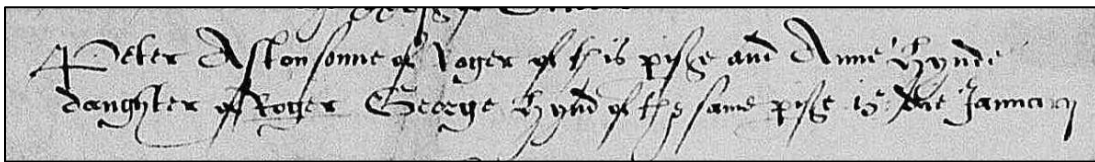 Peter Aston sonne of Roger of this p'ishe and Anne Hynde
daughter of Roger George Hynd of the same p'ishe 15 die Januarij